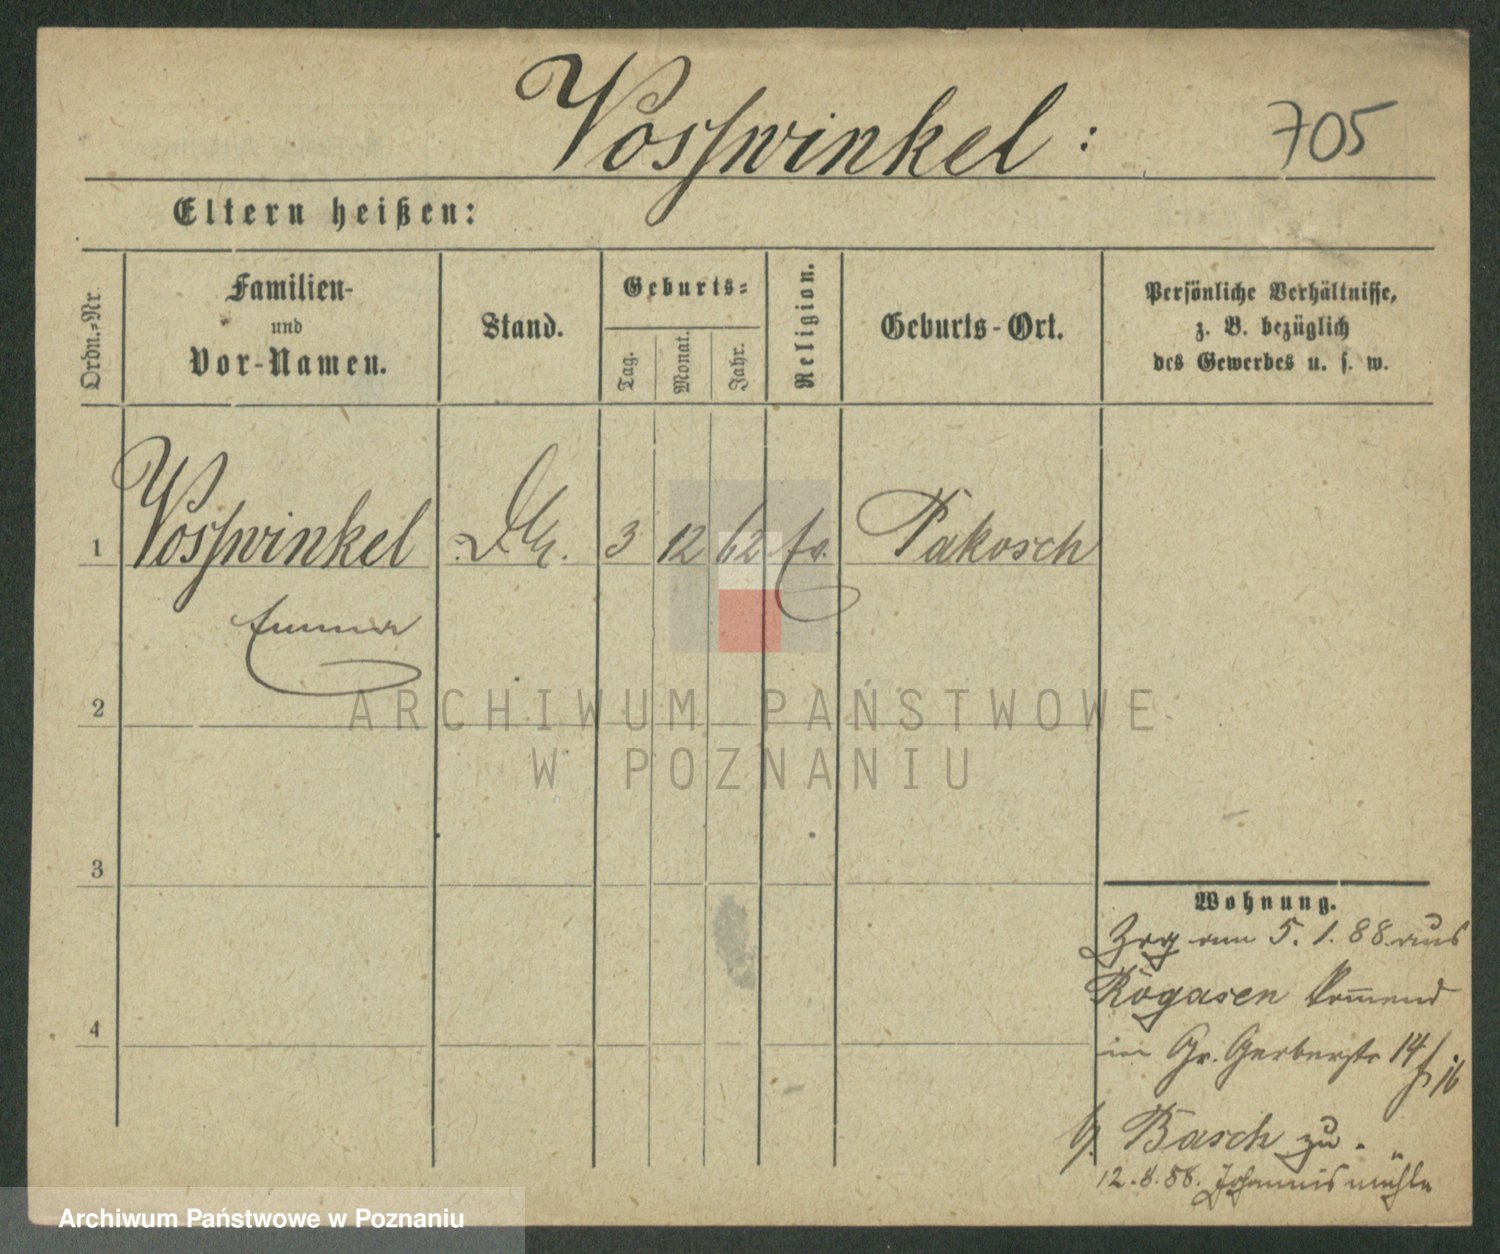 Vossswinkel :
705
Eltern heißen:
Ordn.-Nr.
Familien-
und
Vor-Namen.
Stand.
Geburts-
Tag.
Monat.
Jahr.
Religion.
Geburts-Ort.
Persönliche Verhältnisse,
z. B. bezüglich
des Gewerbes u. s. w.
1 Vosswinkel 3 12 62 ev. Pakosch
Emma
2
ARCHIWUM PAŃSTWOWE
W POZNANIU
3
Wohnung.
Zzg am 5. 1. 88 aus
Rogasen komend
in Gr. Gerberstr 14
b. Basch zu.
4
12.8.88. Johannismühle
Archiwum Państwowe w Poznaniu